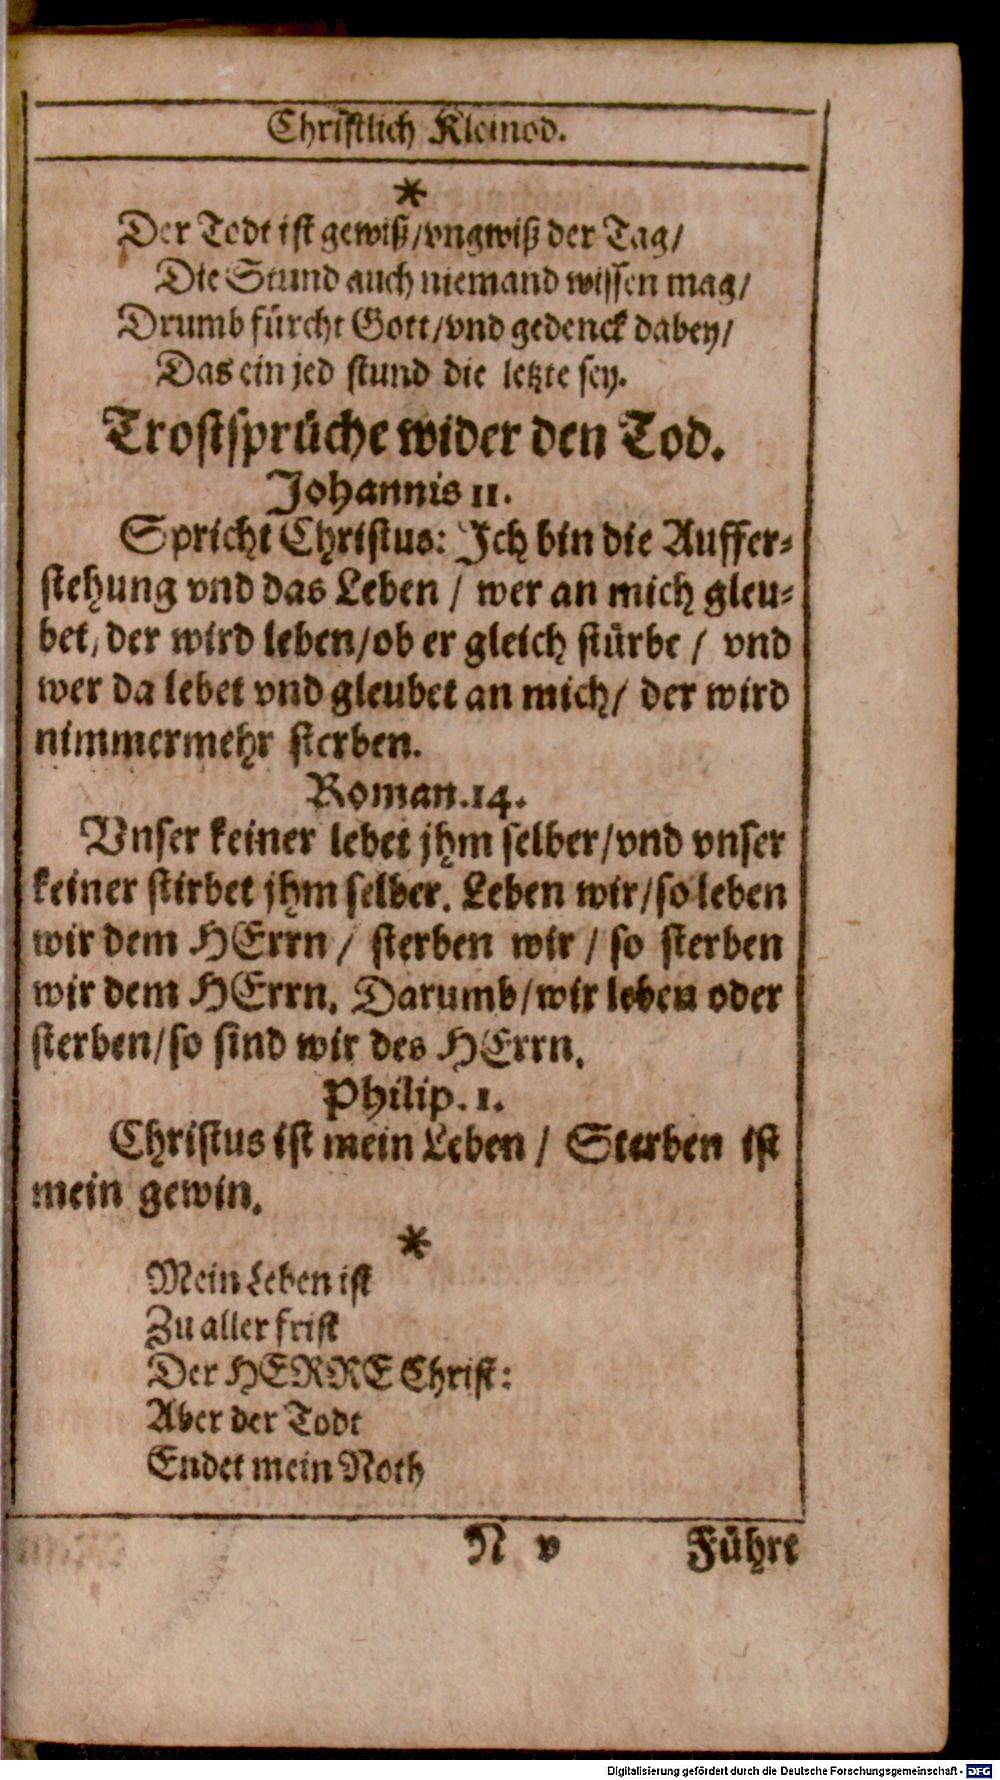 Christlich Kleinod.
*
Der Todt ist gewiß/vngwiß der Tag/
Die Stund auch niemand wissen mag/
Drumb fürcht Gott/vnd gedenck dabey/
Das ein jed stund die letzte sey.
Trostsprüche wider den Tod.
Johannis 11.
Spricht Christus: Ich bin die Auffer-
stehung vnd das Leben / wer an mich gleu-
bet, der wird leben/ob er gleich stürbe / vnd
wer da lebet vnd gleubet an mich/ der wird
nimmermehr sterben.
Roman.14.
Vnser keiner lebet jhm selber/vnd vnser
keiner stirbet jhm selber. Leben wir/so leben
wir dem HErrn / sterben wir / so sterben
wir dem HErrn. Darumb/wir leben oder
sterben/so sind wir des HErrn.
Philip. 1.
Christus ist mein Leben / Sterben ist
mein gewin.
*
Mein Leben ist
Zu aller frist
Der HERRE Christ:
Aber der Todt
Endet mein Noth
N v Führt
Digitalisierung gefördert durch die Deutsche Forschungsgemeinschaft - DFG